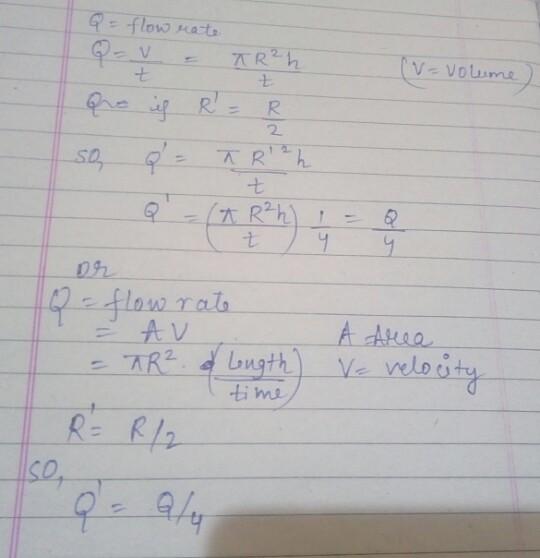 Q = flow rate
Q = V/t = πR²h/t (V = Volume)
Q if R' = R/2
so, Q' = πR'²h/t
Q' = (πR²h/t) 1/4 = Q/4
OR
Q = flow rate
= AV A = Area
= πR². (Length/time) V = velocity
R' = R/2
SO,
Q' = Q/4